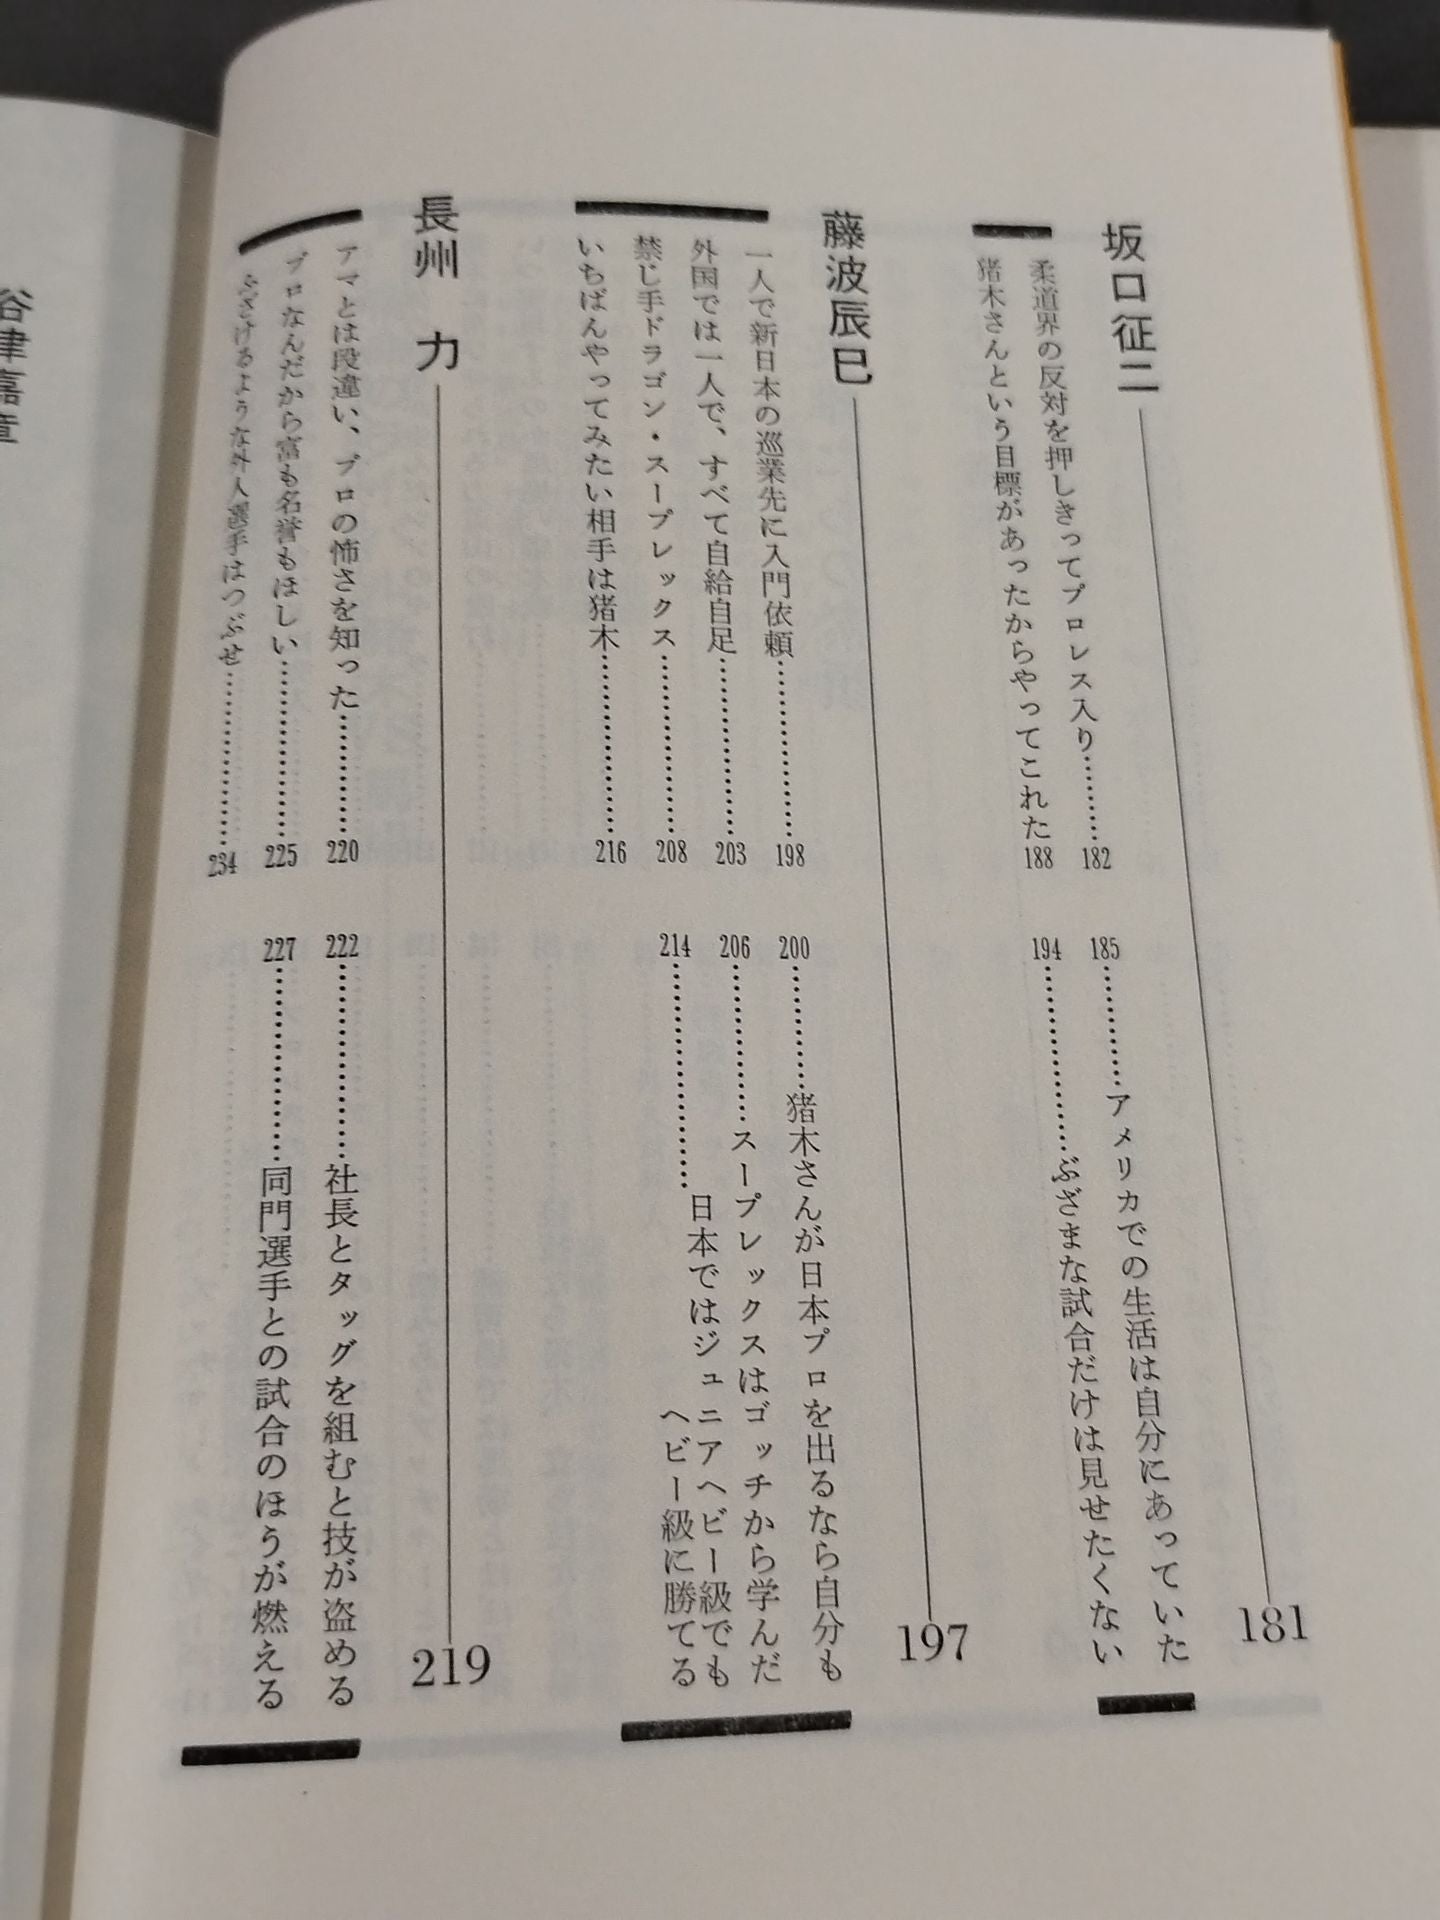 坂口征二 181
柔道界の反対を押しきってプロレス入り…………182
185…………アメリカでの生活は自分にあっていた
猪木さんという目標があったからやってこれた 188
194…………ぶざまな試合だけは見せたくない
藤波辰巳 197
一人で新日本の巡業先に入門依頼…………198
200…………猪木さんが日本プロを出るなら自分も
外国では一人で、すべて自給自足…………203
206…………スープレックスはゴッチから学んだ
禁じ手ドラゴン・スープレックス…………208
214…………日本ではジュニアヘビー級でも
ヘビー級に勝てる
いちばんやってみたい相手は猪木…………216
長州 力 219
アマとは段違い、プロの怖さを知った…………220
222…………社長とタッグを組むと技が盗める
プロなんだから富も名誉もほしい…………225
227…………同門選手との試合のほうが燃える
ふざけるような外人選手はつぶせ…………234
谷津嘉章